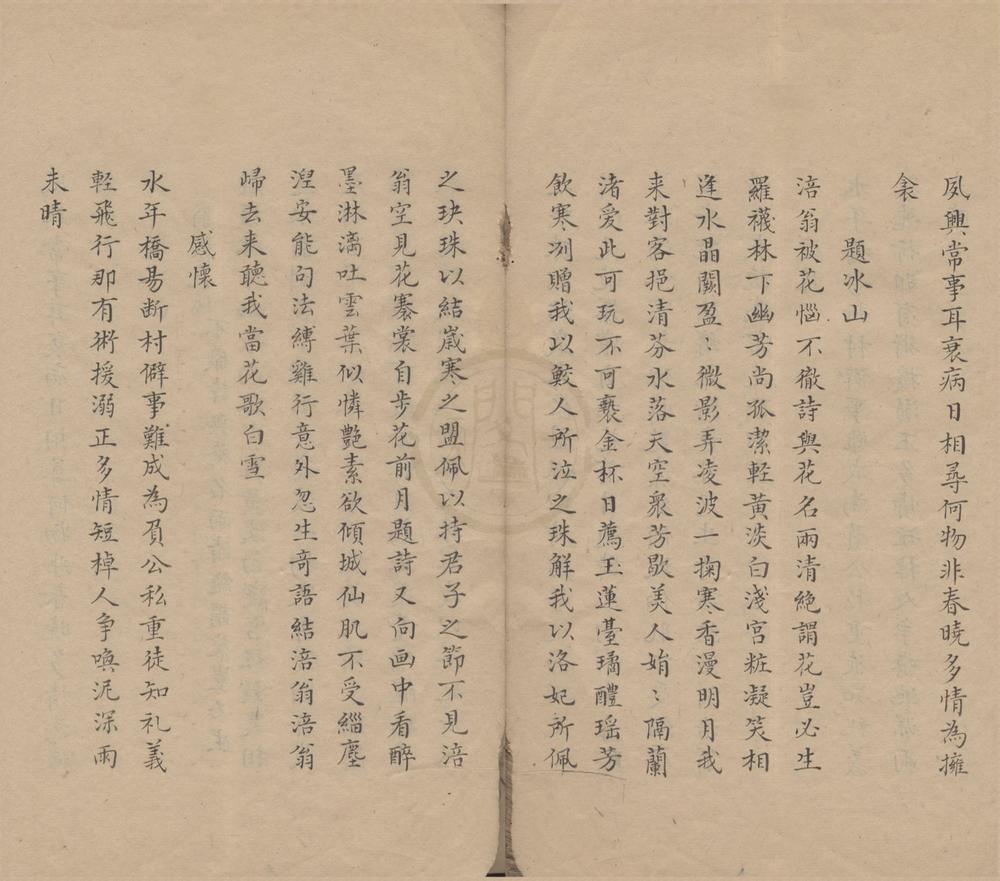 夙興常事耳衰病日相尋何物非春曉多情為擁
衾
題冰山
涪翁被花惱不徹詩與花名兩清絶謂花豈必生
羅襪林下幽芳尚孤潔輕黃淡白淺宮粧凝笑相
逢水晶闕盈〻微影弄凌波一掬寒香漫明月我
来對客挹清芬水落天空衆芳歇美人娟〻隔蘭
渚愛此可玩不可褻金杯日薦玉蓮臺璚醴瑶芳
飲寒冽贈我以鮫人所泣之珠解我以洛妃所佩
之玦珠以結嵗寒之盟佩以持君子之節不見涪
翁空見花褰裳自步花前月題詩又向画中看醉
墨淋漓吐雲葉似憐艷素欲傾城仙肌不受緇塵
湼安能句法縛雞行意外忽生奇語結涪翁涪翁
㱕去来聽我當花歌白雪
感懷
水年橋易断村僻事難成為負公私重徒知礼義
輕飛行那有術援溺正多情短棹人争喚泥深雨
未晴